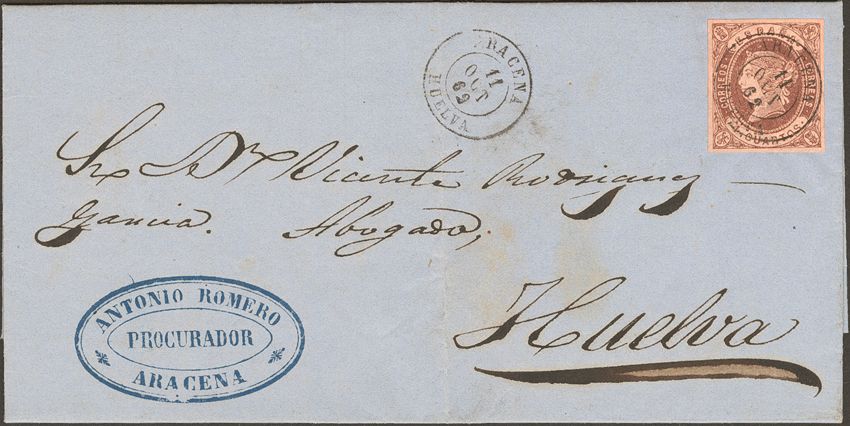 ARACENA
11
OCT
62
HUELVA
CORREOS
4 CUARTOS
11
OCT
62
Sr. Dn. Vicente Rodriguez
Garcia. Abogado,
Huelva
ANTONIO ROMERO
PROCURADOR
ARACENA